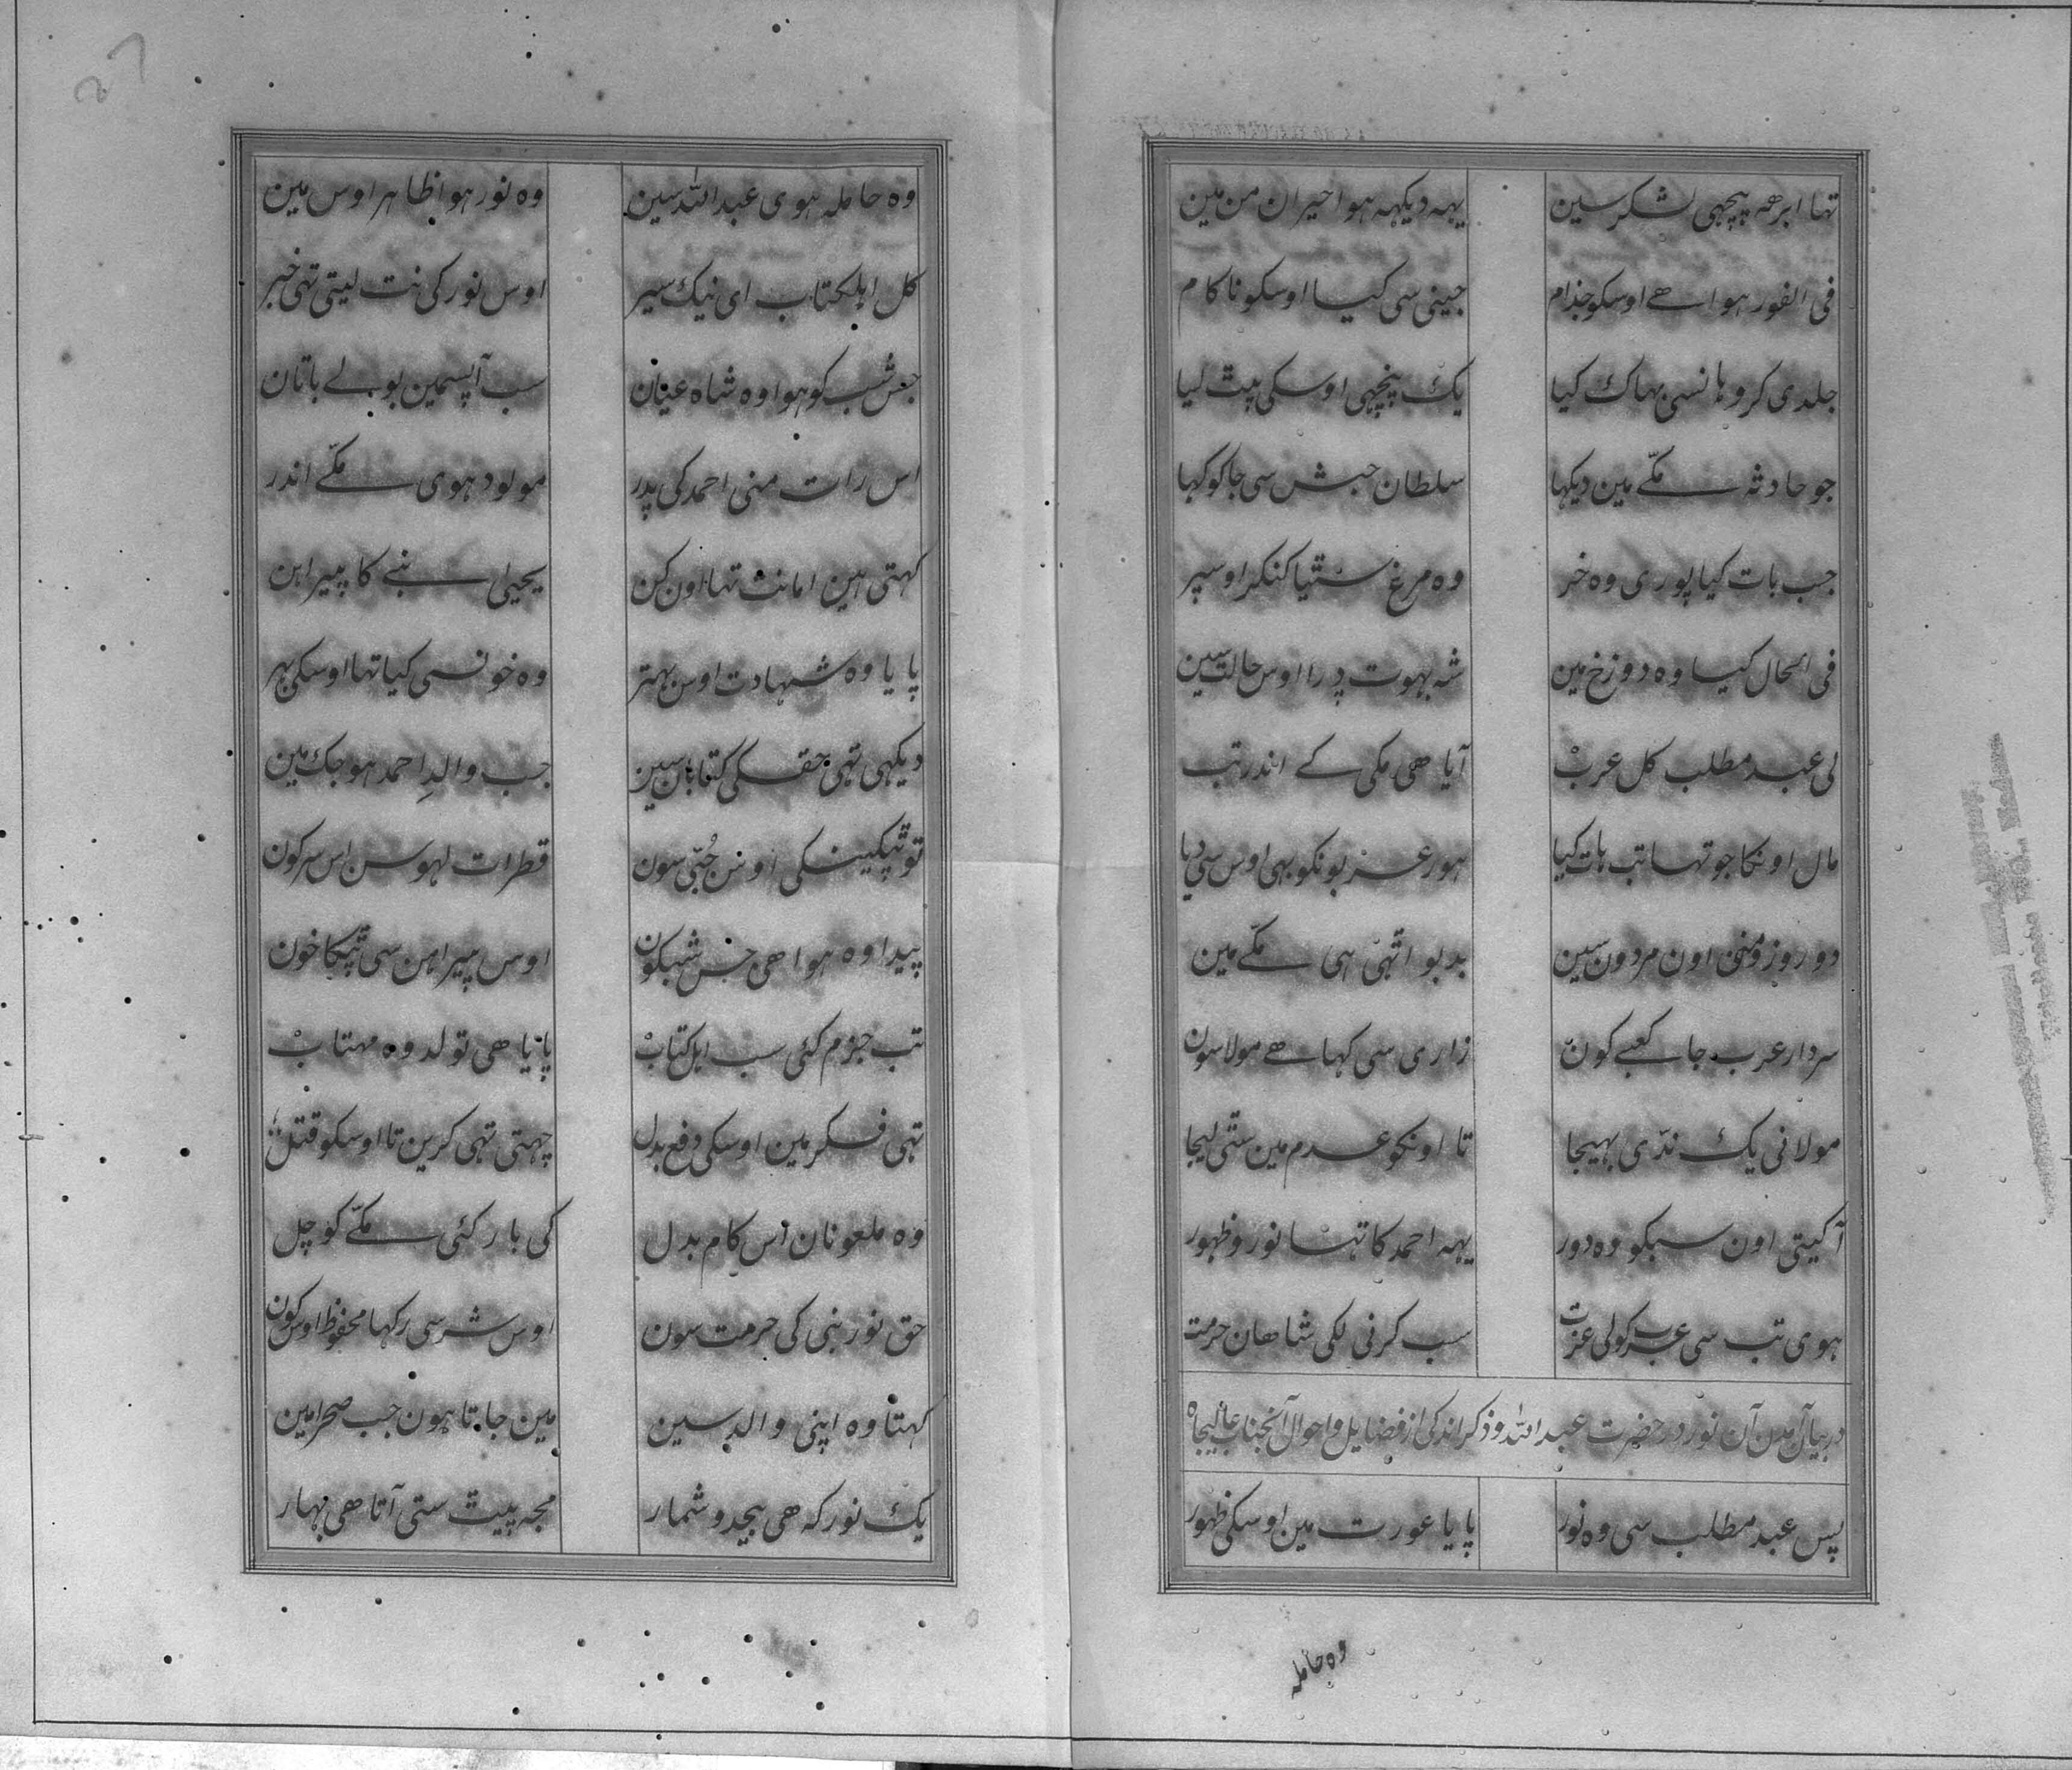 تہا ابرھہ پیچہی لشکر سین یہہ دیکہہ ہوا حیران من مین
فی الفور ہوا ھے اوسکو جذام جینی سی کیا اوسکو ناکام
جلدی کر وہانسی بہاک کیا یک پنچہی اوسکی پیت لیا
جو حادثہ مکّے مین دیکہا سلطان حبش سی جا کو کہا
جب بات کیا پوری وہ خر وہ مرغ سٹیا کنکر اوسپر
فی الحال کیا وہ دوزخ مین شہ بہوت درا اوس حالت سین
لی عبد مطلب کل عرب آیا ھی مکی کے اندر تب
مال اونکا جو تہا تب ہات کیا ہور عزبونکو بہی اوس سی دیا
دو روز منی اون مردون سین بدبو اتہی ہی مکّے مین
سردار عرب جا کعبے کون زاری سی کہا ھے مولا سون
مولانی یک ندّی بہیجا تا اونکو عدم مین ستی لیجا
آ کیتی اون سبکو وہ دور یہہ احمد کا تہا نور و ظہور
ہوی تب سی عرب کو لی عزت سب کرنی لکی شاھان حرمت
در بیان آمدن آن نور در حضرت عبد اللہ و ذکر اندکی از فضایل و احوال آنجناب عالیجاہ
پس عبد مطلب سی وہ نور پایا عورت مین اوسکی ظہور
وہ حاملہ
وہ حاملہ ہوی عبد اللہ سین وہ نور ہوا ظاہر اوس مین
کل اہلکتاب ای نیک سیر اوس نور کی نت لیتی تہی خبر
جس شب کو ہوا وہ شاہ عیان سب آپسمین بولے باتان
اس رات منی احمد کی پدر مولود ہوی مکّے اندر
کہتی ہین امانت تہا اون کن یحییٰ بنے کا پیراہن
پایا وہ شہادت اوس بہتر وہ خونسی کیا تہا اوسکی بہر
دیکہی تہی حقکی کتابان سین جب والدِ احمد ہو جک مین
تو ٹپکینکی اوس جُبّی سون قطرات لہو سن اس سر کون
پیدا وہ ہوا ھی جس شبکون اوس پیراہن سی ٹپکا خون
تب جزم کئی سب اہل کتاب پایا ھی تولد وہ مہتاب
تہی فکر مین اوسکی دفع بدل چہتی تہی کرین تا اوسکو قتل
وہ ملعونان اس کام بدل کی بار کئی مکّے کو چل
حق نور نبی کی حرمت سون اوس شر سی رکہا محفوظ اوس کون
کہتا وہ اپنی والد سین مین جاتا ہون جب صحرا مین
یک نور کہ ھی بیحد و شمار مجہ پیٹ ستی آتا ھی بہار